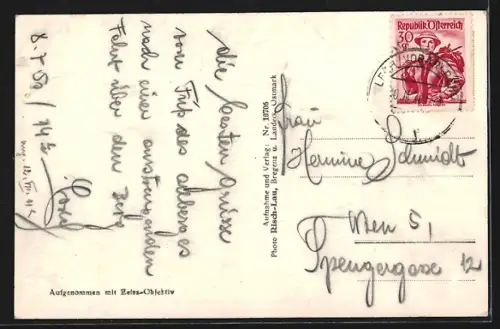 8.7.50 / 14h
die besten Grüsse
vom Fuß des Arlberges
nach einer anstrengenden
Fahrt über den
Aufgenommen mit Zeiss-Objektiv
Aufnahme und Verlag: Nr. 10706
Photo Risch-Lau, Bregenz u. Landeck, Ostmark
Republik Österreich
30
Frau
Hermine Schmidt
Wien 5,
Spengergasse 12